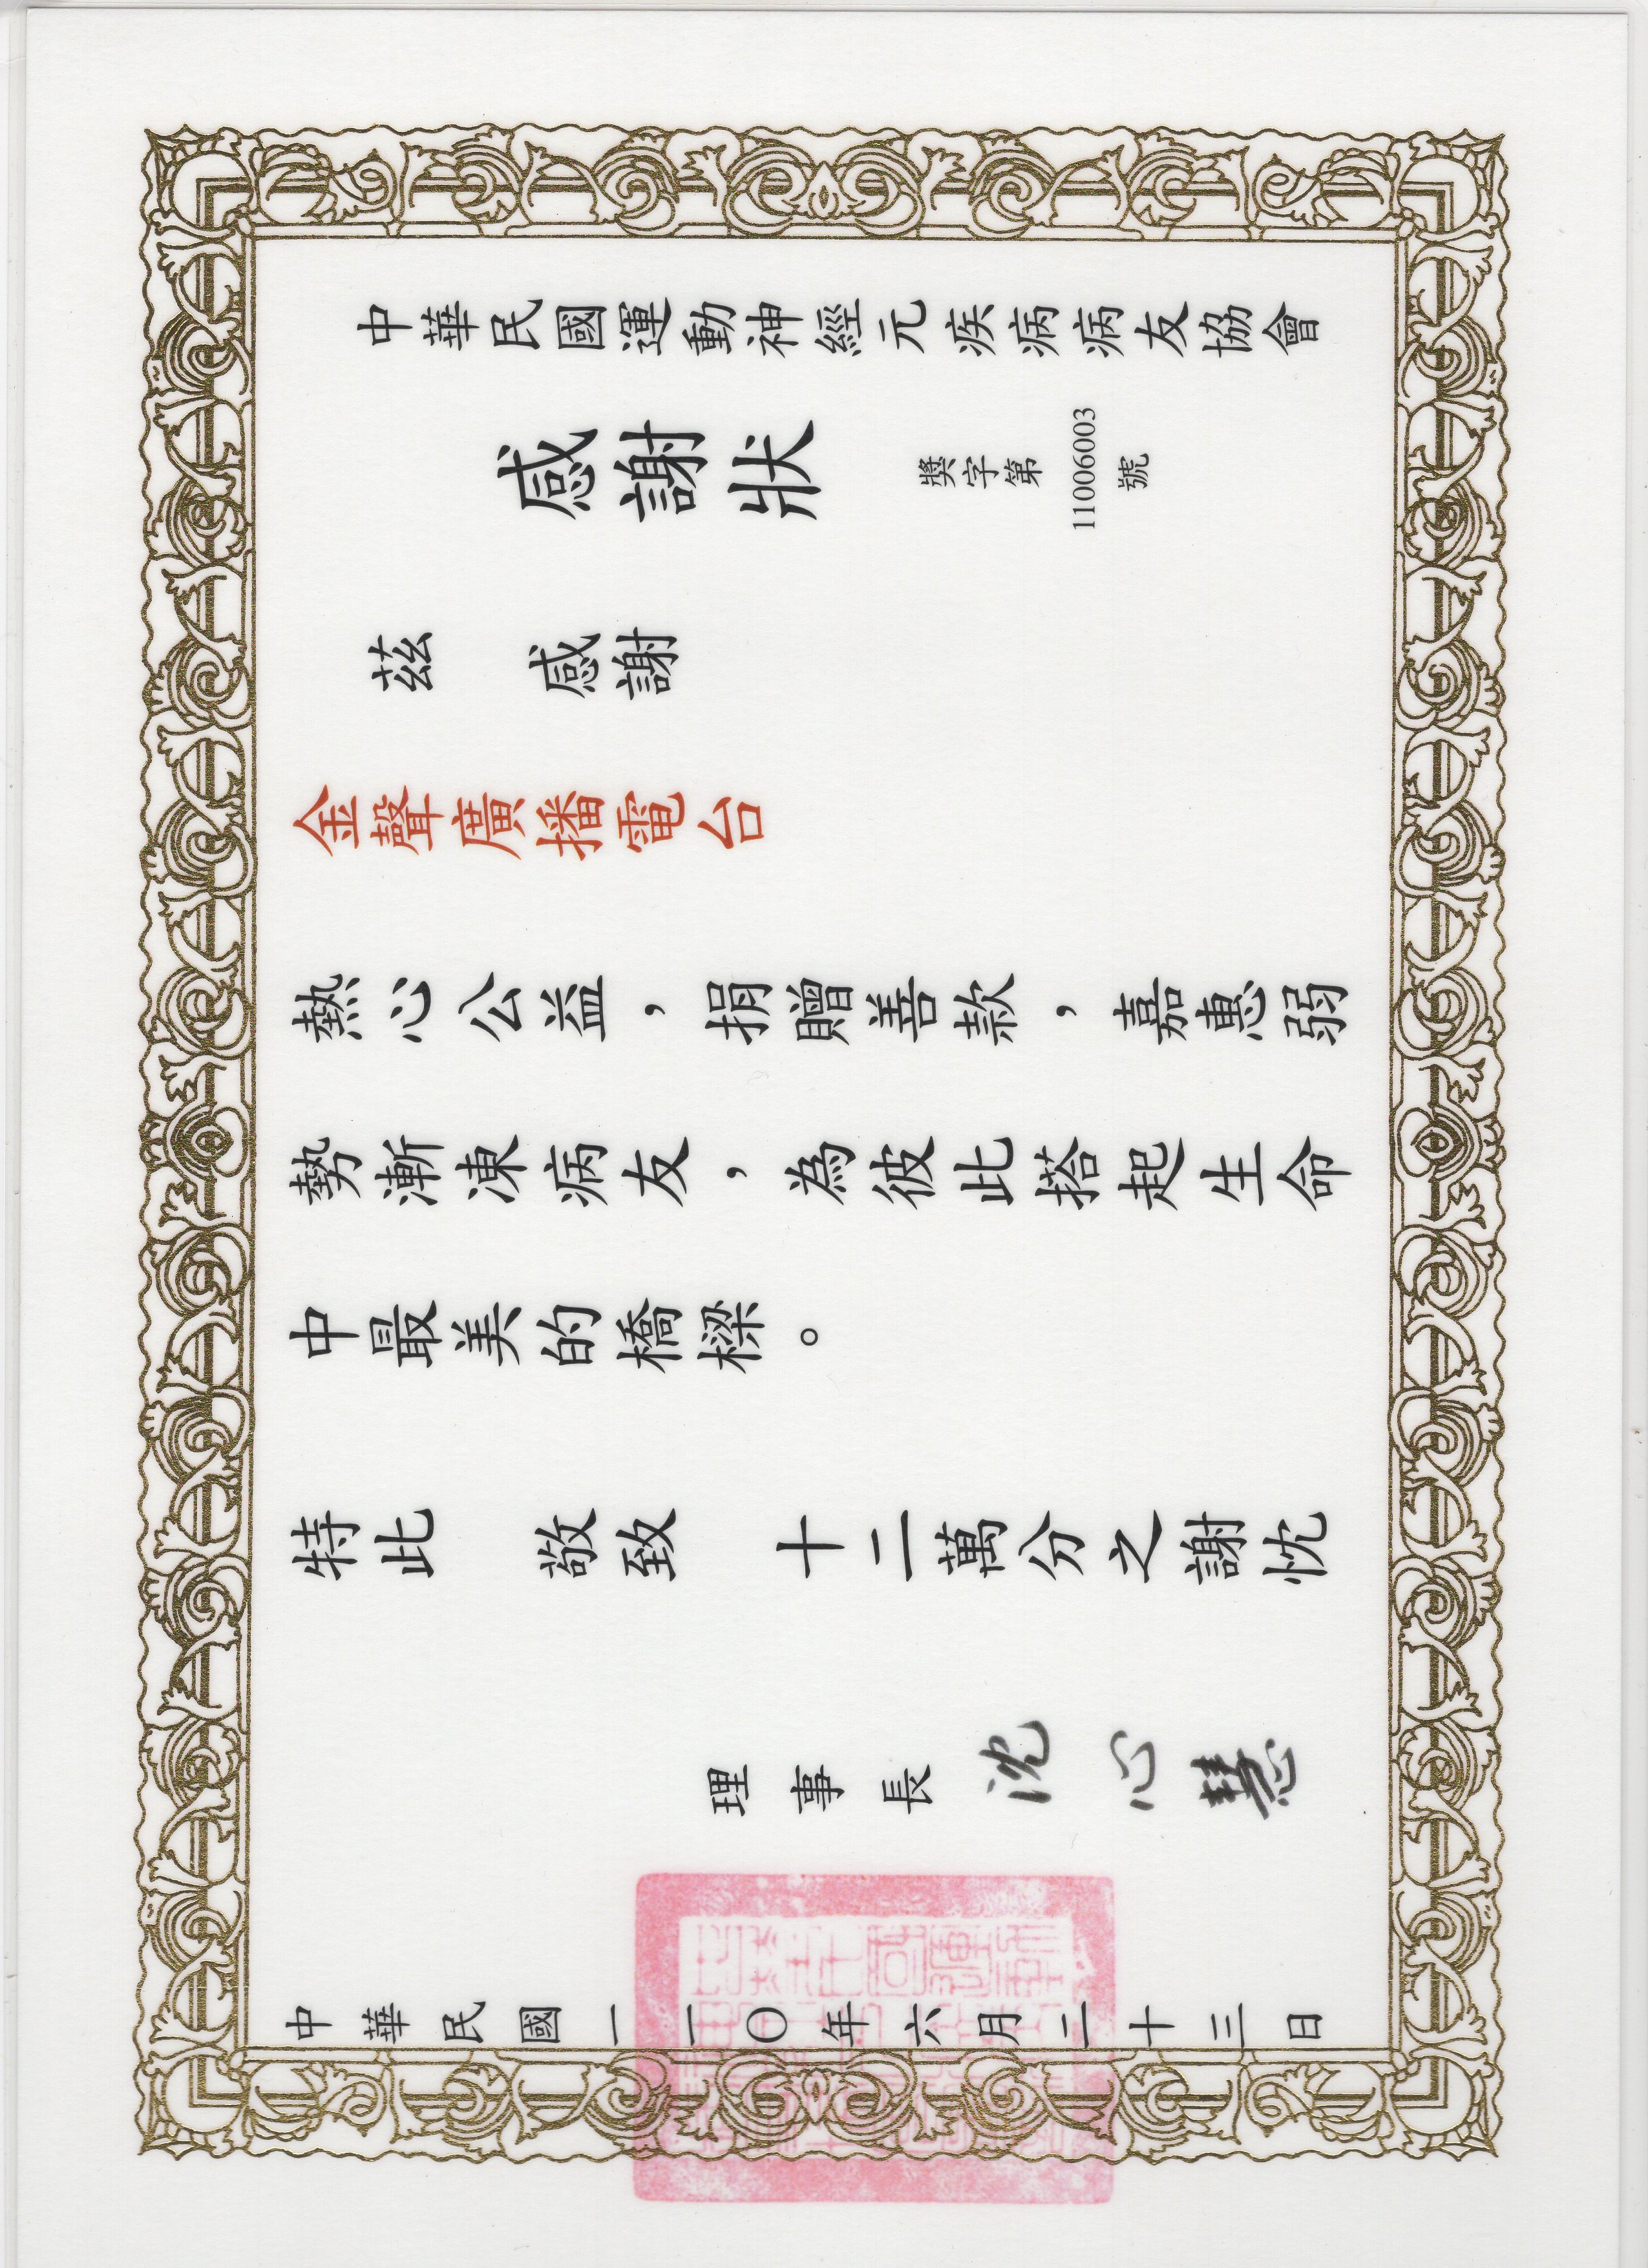 中華民國運動神經元疾病病友協會
感謝狀
獎字第
11006003
號
茲 感謝
金聲廣播電台
熱心公益，捐贈善款，嘉惠弱
勢漸凍病友，為彼此搭起生命
中最美的橋樑。
特此 敬致 十二萬分之謝忱
理事長 沈心慧
中華民國一一〇年六月二十三日